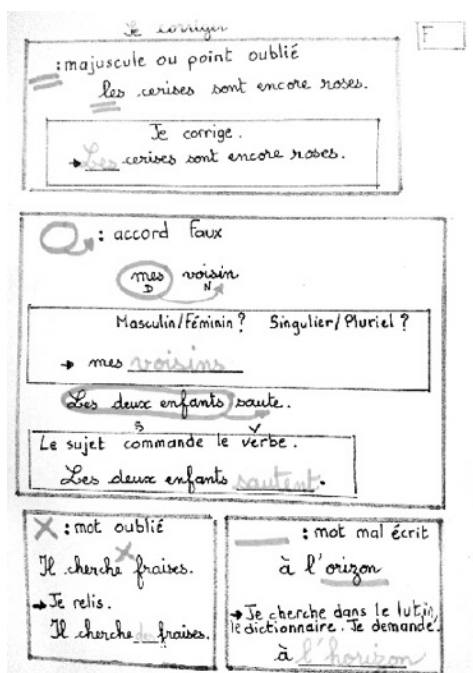 Je corriger
F
: majuscule ou point oublié
les cerises sont encore roses.
Je corrige.
→ Les cerises sont encore roses.
: accord Faux
mes voisin
D N
Masculin/Féminin ? Singulier/Pluriel ?
→ mes voisins
Les deux enfants saute.
S V
Le sujet commande le verbe.
Les deux enfants sautent.
X : mot oublié
Il cherche fraises.
→ Je relis.
Il cherche des fraises.
: mot mal écrit
à l'orizon
→ Je cherche dans le lutin,
le dictionnaire. Je demande.
à l'horizon